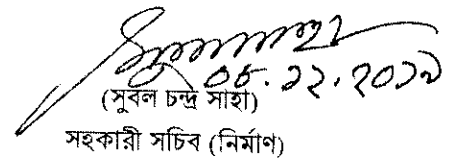 ০৮.১২.২০১৯
(সুবল চন্দ্র সাহা)
সহকারী সচিব (নির্মাণ)